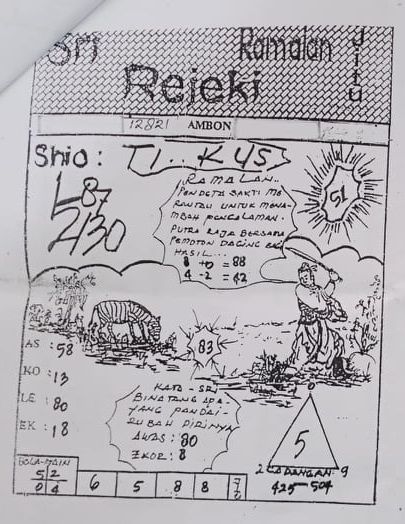 Sri Ramalan Jitu
Rejeki
12821 AMBON
Shio : TI..KUS
L 87
2/30
RAMALAN..
PENDETA SAKTI ME
RANTAU UNTUK MENA-
MBAH PENGALAMAN.
PUTRA RAJA BERSAMA
PEMOTON DAGING
HASIL...
8 +0 = 88
4 -2 = 42
51
83
AS : 58
KO : 13
LE : 80
EK : 18
KATA-SRI
BINATANG APA
YANG PANDAI-
RUBAH DIRINYA
AWAS : 80
EKOR : 8
0
5
2 CADANGAN 9
425-504
BOLA-MAIN
52
94
6 5 8 8 7/2